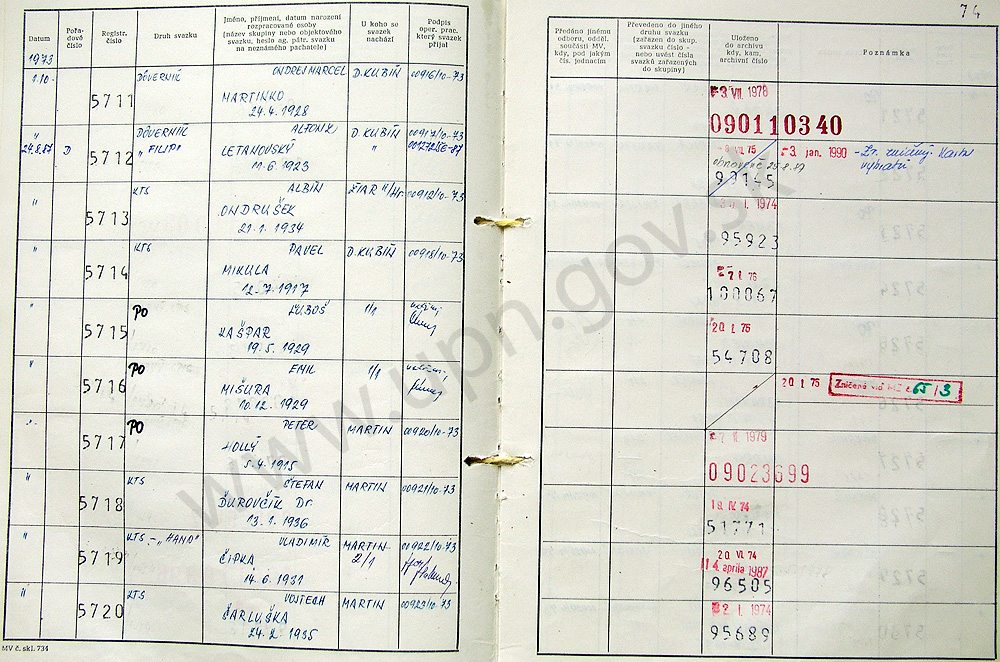 74
Datum
Pořadové číslo
Registr. číslo
Druh svazku
Jméno, příjmení, datum narození rozpracované osoby (název skupiny nebo objektového svazku, heslo ag. pátr. svazku na neznámého pachatele)
U koho se svazek nachází
Podpis oper. prac. který svazek přijal
Předáno jinému odboru, odděl. součásti MV, kdy, pod jakým čís. jednacím
Převedeno do jiného druhu svazku (zařazen do skup. svazku číslo - nebo uvést čísla svazků zařazených do skupiny)
Uloženo do archivu kdy, kam, archivní číslo
Poznámka
1973
1.10. 5711 DÔVERNÍK ONDREJ MARCEL D. KUBÍN 00916/10-73
MARTINKO
24.4.1928
3. VII. 1978
090110340
" 5712 DÔVERNÍK ALFONZ D. KUBÍN 00917/10-73
24.8.87 D "FILIP" LETANOVSKÝ "
11.6.1923
75 3. jan. 1990
25.8.87
" 5713 KTS ALBÍN ŽIAR n/Hr. 00912/10-73
ONDRUŠEK
21.1.1934
I. 1974
95923
" 5714 KTS PAVEL D. KUBÍN 00918/10-73
MIKULA
12.7.1917
100067
" 5715 PO ĽUBOŠ 1/1
KAŠPAR
19.5.1929
20. I. 75
54708
" 5716 PO EMIL 1/1
MIŠURA
10.12.1929
20. I. 75 65/3
5717 PO PETER MARTIN 00920/10-73
HOLLÝ
5.4.1915
1979
09023699
5718 KTS ŠTEFAN MARTIN 00921/10-73
ĎUROVČÍK Dr.
13.1.1936
18. IV. 74
51771
" 5719 KTS - "HANO" VLADIMÍR MARTIN 00922/10-73
ČIPKA 2/1
14.6.1931
20. VI. 74
14. apríla 1987
96505
" 5720 KTS VOJTECH MARTIN 00923/10-73
ŠARLUŠKA
24.2.1935
2. I. 1974
95689
MV č. skl. 734
www.upn.gov.sk